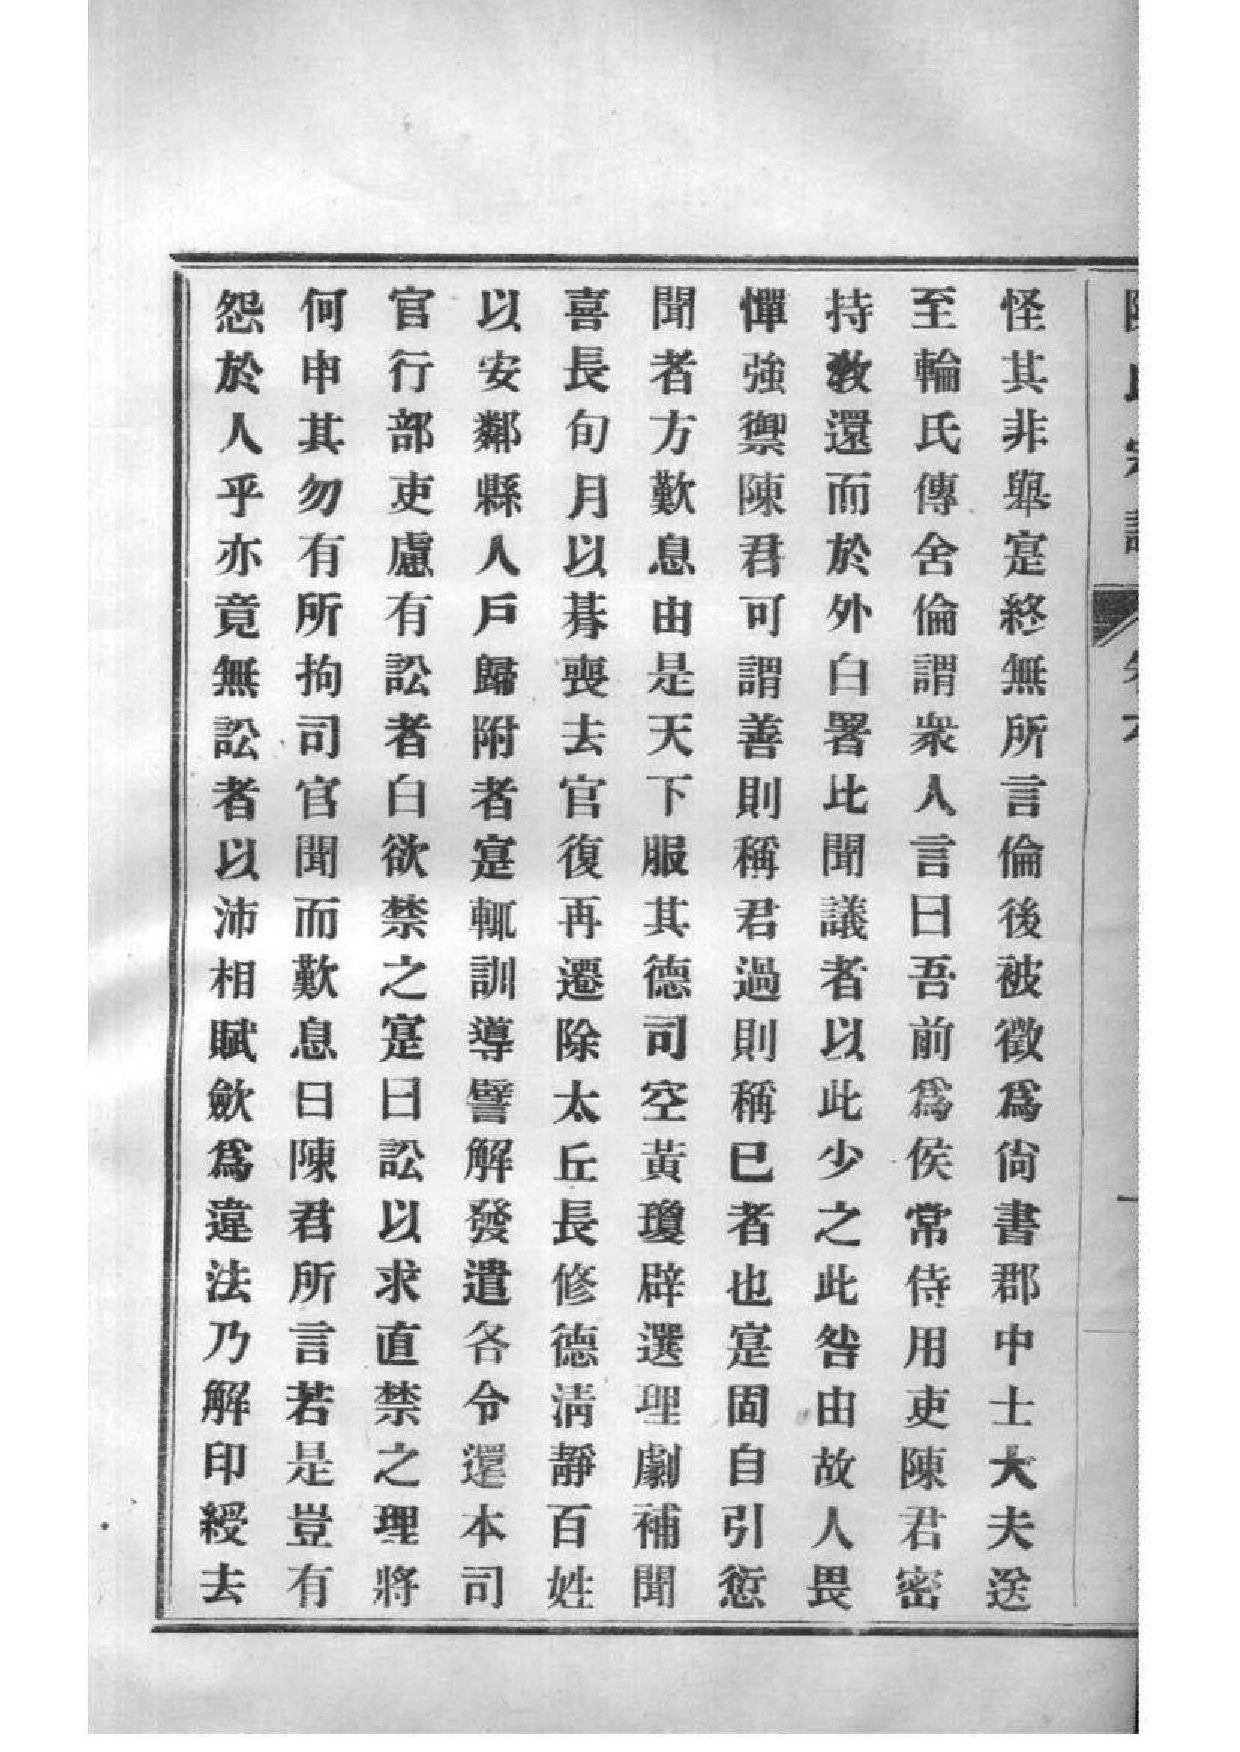 怪其非舉寔終無所言倫後被徵爲尙書郡中士大夫送
至輪氏傳舍倫謂衆人言曰吾前爲侯常侍用吏陳君密
持敎還而於外白署比聞議者以此少之此咎由故人畏
憚強禦陳君可謂善則稱君過則稱已者也寔固自引愆
聞者方歎息由是天下服其德司空黃瓊辟選理劇補聞
喜長旬月以朞喪去官復再遷除太丘長修德淸靜百姓
以安鄰縣人戶歸附者寔輒訓導譬解發遣各令還本司
官行部吏慮有訟者白欲禁之寔曰訟以求直禁之理將
何申其勿有所拘司官聞而歎息曰陳君所言若是豈有
怨於人乎亦竟無訟者以沛相賦斂爲違法乃解印綬去